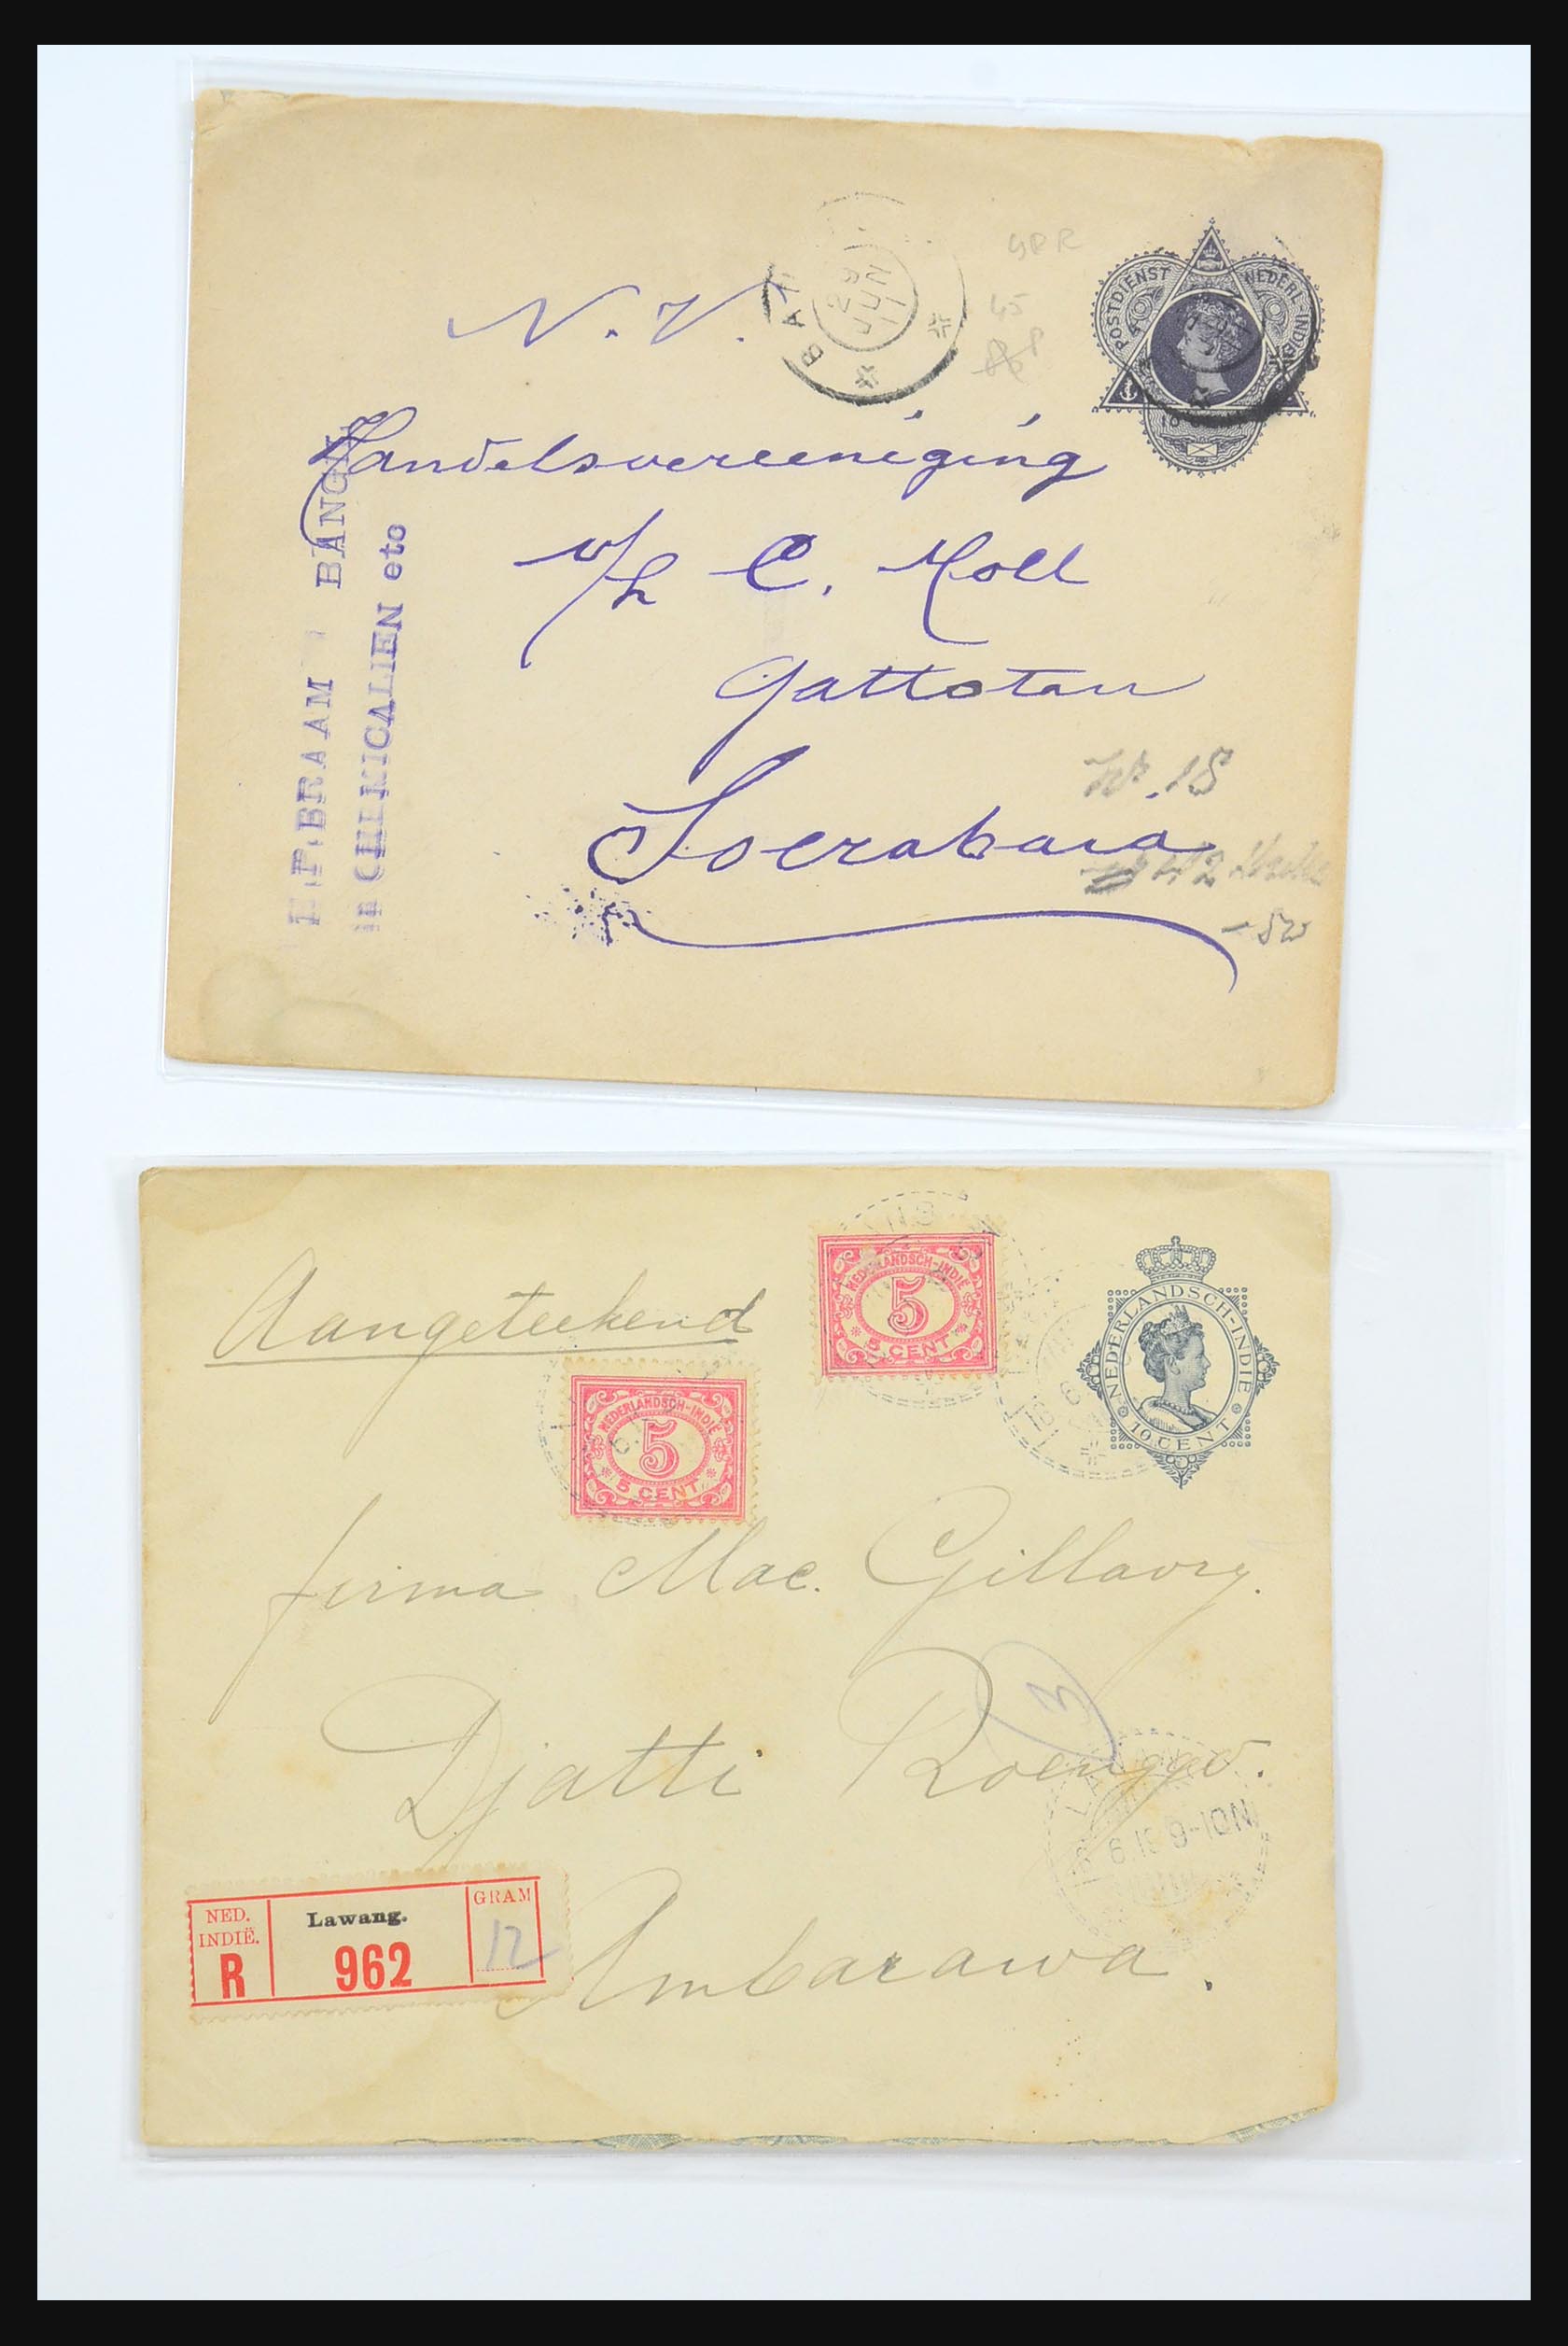 POSTDIENST NEDERL-INDIE
29
JUN
11
N. V.
Handelsvereeniging
v/h C. Moll
Gattotan
Soerabaia
BRAAM BANGIL
in CHEMICALIEN etc
45
Aangeteekend
NEDERLANDSCH-INDIË
5
5 CENT
NEDERLANDSCH-INDIË
5
5 CENT
NEDERLANDSCH-INDIË
10 CENT
firma Mac. Gillavry.
3
Djatti Roenggo.
9-10N
Ambarawa.
NED. INDIË.
R
Lawang.
962
GRAM
12